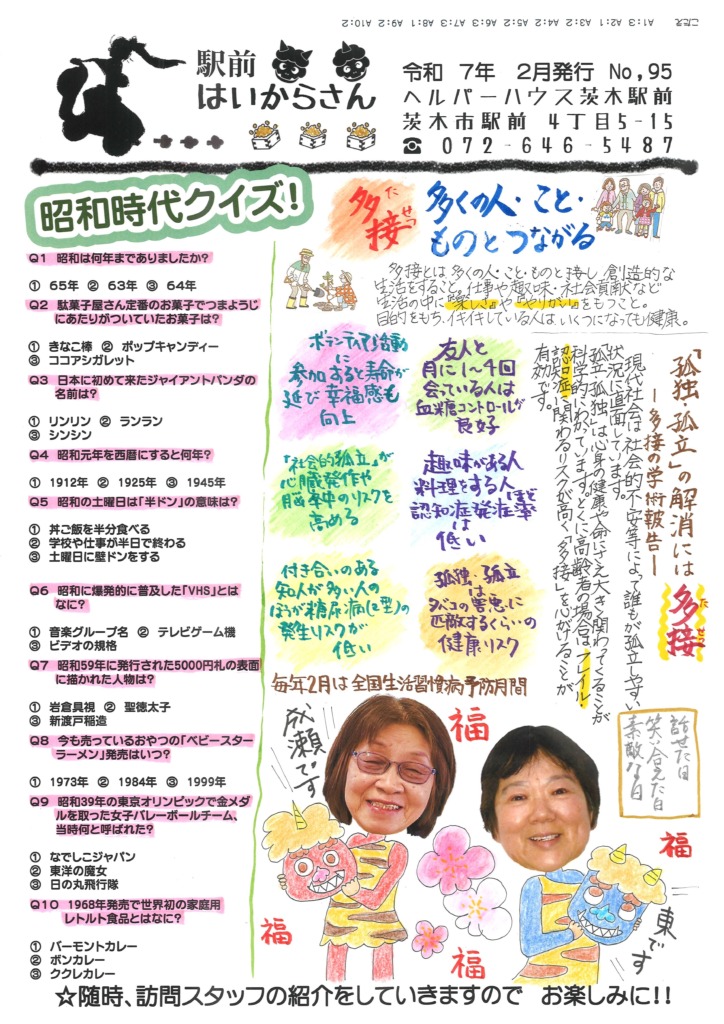 こたえ A1：3 A2：1 A3：2 A4：2 A5：2 A6：3 A7：3 A8：1 A9：2 A10：2
駅前
はいからさん
令和 7年 2月発行 No,95
ヘルパーハウス茨木駅前
茨木市駅前 4丁目5-15
☎ 072-646-5487
昭和時代クイズ!
Q1 昭和は何年までありましたか?
① 65年 ② 63年 ③ 64年
Q2 駄菓子屋さん定番のお菓子でつまようじ
にあたりがついていたお菓子は?
① きなこ棒 ② ポップキャンディー
③ ココアシガレット
Q3 日本に初めて来たジャイアントパンダの
名前は?
① リンリン ② ランラン
③ シンシン
Q4 昭和元年を西暦にすると何年?
① 1912年 ② 1925年 ③ 1945年
Q5 昭和の土曜日は「半ドン」の意味は?
① 丼ご飯を半分食べる
② 学校や仕事が半日で終わる
③ 土曜日に壁ドンをする
Q6 昭和に爆発的に普及した「VHS」とは
なに?
① 音楽グループ名 ② テレビゲーム機
③ ビデオの規格
Q7 昭和59年に発行された5000円札の表面
に描かれた人物は?
① 岩倉具視 ② 聖徳太子
③ 新渡戸稲造
Q8 今も売っているおやつの「ベビースター
ラーメン」発売はいつ?
① 1973年 ② 1984年 ③ 1999年
Q9 昭和39年の東京オリンピックで金メダ
ルを取った女子バレーボールチーム、
当時何と呼ばれた?
① なでしこジャパン
② 東洋の魔女
③ 日の丸飛行隊
Q10 1968年発売で世界初の家庭用
レトルト食品とはなに?
① バーモントカレー
② ボンカレー
③ ククレカレー
多接
たせつ
多くの人・こと・
ものとつながる
多接とは多くの人・こと・ものと接し、創造的な
生活をすること。仕事や趣味・社会貢献など
生活の中に『楽しさ』や『やりがい』をもつこと。
目的をもち、イキイキしている人は、いくつになっても健康。
ボランティア活動
に
参加すると寿命が
延び幸福感も
向上
友人と
月に1〜4回
会っている人は
血糖コントロールが
良好
「社会的孤立」が
心臓発作や
脳卒中のリスクを
高める
趣味がある人
料理をする人ほど
認知症発症率
は
低い
付き合いのある
知人が多い人の
ほうが糖尿病(2型)の
発生リスクが
低い
孤独・孤立
は
タバコの害悪に
匹敵するくらいの
健康リスク
「孤独・孤立」の解消には
多接
たせつ
ー多接の学術報告ー
現代社会は、社会的不安等によって誰もが孤立しやすい
状況に直面しています。
「孤立・孤独」は、心身の健康や命にさえ大きく関わってくることが
科学的にわかっています。とくに高齢者の場合は、フレイル・
認知症に関わるリスクが高く「多接」を心がけることが
有効です。
毎年2月は全国生活習慣病予防月間
話せた日
笑い合えた日
素敵な日
成瀬です
福
福
東です
福
福
☆随時、訪問スタッフの紹介をしていきますので お楽しみに!!